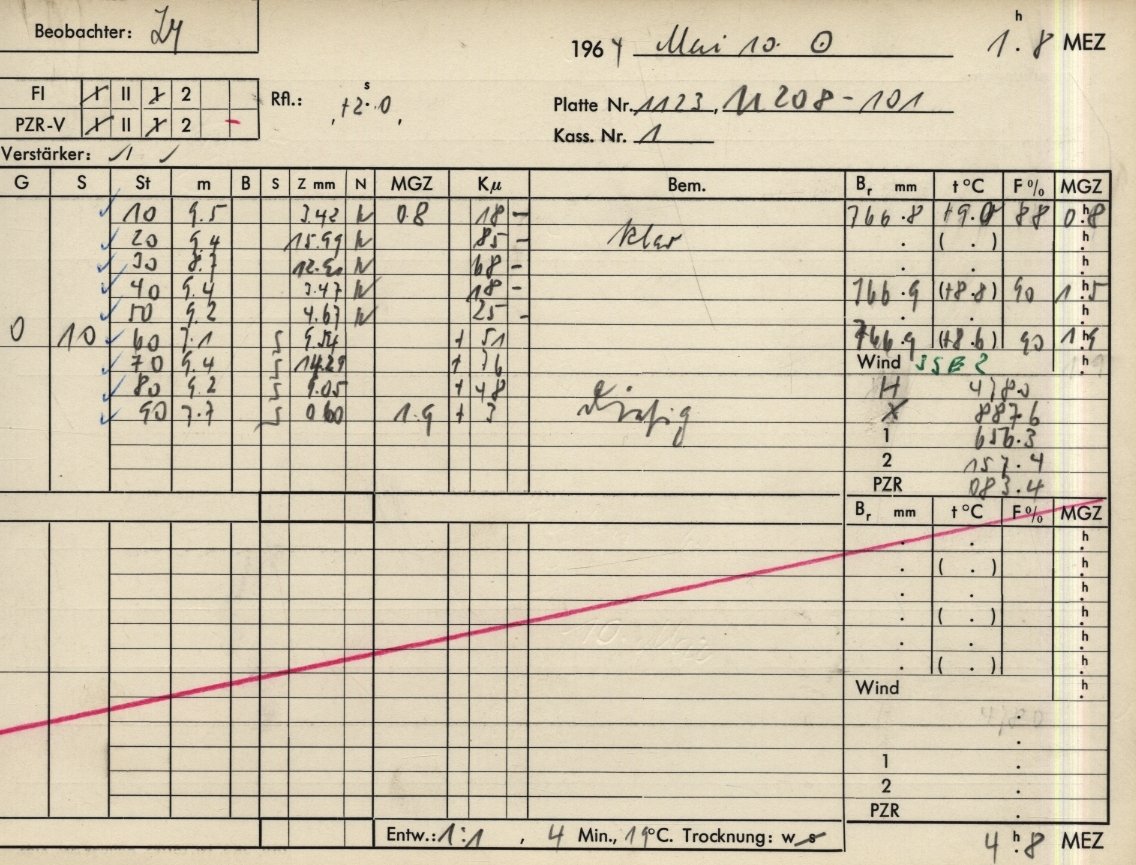 Beobachter:
1964 Mai 10. 1.ʰ8 MEZ
FI I II 1 2
PZR-V I II 1 2 –
Rfl.: +2.ˢ0
Platte Nr. 1123, 208-101
Kass. Nr. 1
Verstärker: 1
G S St m B S Z mm N MGZ Kμ Bem. Bᵣ mm t °C F % MGZ
10 9.5 3.42 N 0.8 18 – 766.8 +9.0 88 0.ʰ8
20 9.4 15.99 N 85 – klar . ( . ) .ʰ
30 8.7 N 68 – . . .ʰ
40 9.4 3.47 N 18 – 766.9 (+8.8) 90 1.ʰ5
50 9.2 4.67 N 25 – . . .ʰ
0 10 60 7.1 S 9.54 + 51 766.9 (+8.6) 90 1.ʰ9
70 9.4 S 14.29 + 76 Wind SSE 2 .ʰ
80 9.2 S 9.05 + 48 H 4780
90 7.7 S 0.60 1.9 + 3 X 887.6
1 656.3
2 157.4
PZR 083.4
Bᵣ mm t °C F % MGZ
. . .ʰ
. ( . ) .ʰ
. . .ʰ
. ( . ) .ʰ
. . .ʰ
. ( . ) .ʰ
Wind .ʰ
.
.
1 .
2 .
PZR .
Entw.: 1:1, 4 Min., 19°C. Trocknung: w s
4.ʰ8 MEZ